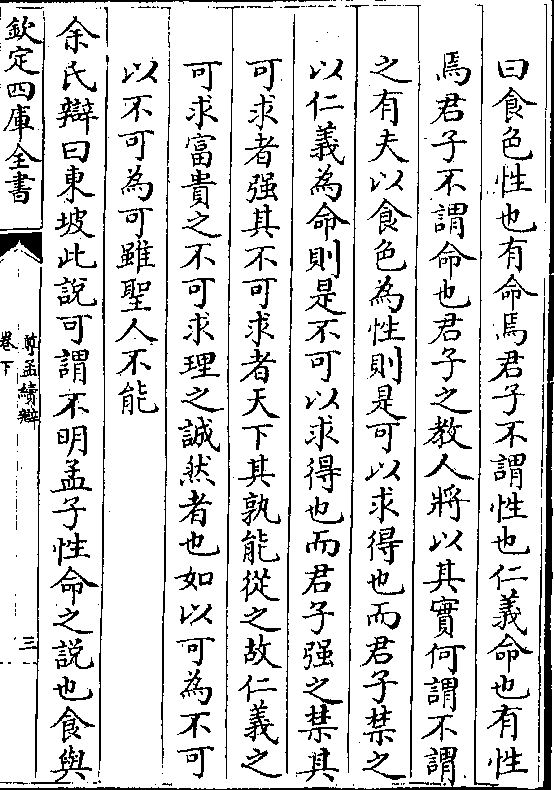 曰食色性也有命焉君子不謂性也仁義命也有性
焉君子不謂命也君子之教人將以其實何謂不謂
之有夫以食色為性則是可以求得也而君子禁之
以仁義為命則是不可以求得也而君子强之禁其
可求者强其不可求者天下其孰能從之故仁義之
可求富貴之不可求理之誠然者也如以可為不可
以不可為可雖聖人不能
余氏辯曰東坡此說可謂不明孟子性命之說也食與
欽定四庫全書
尊孟續辯
卷下
三